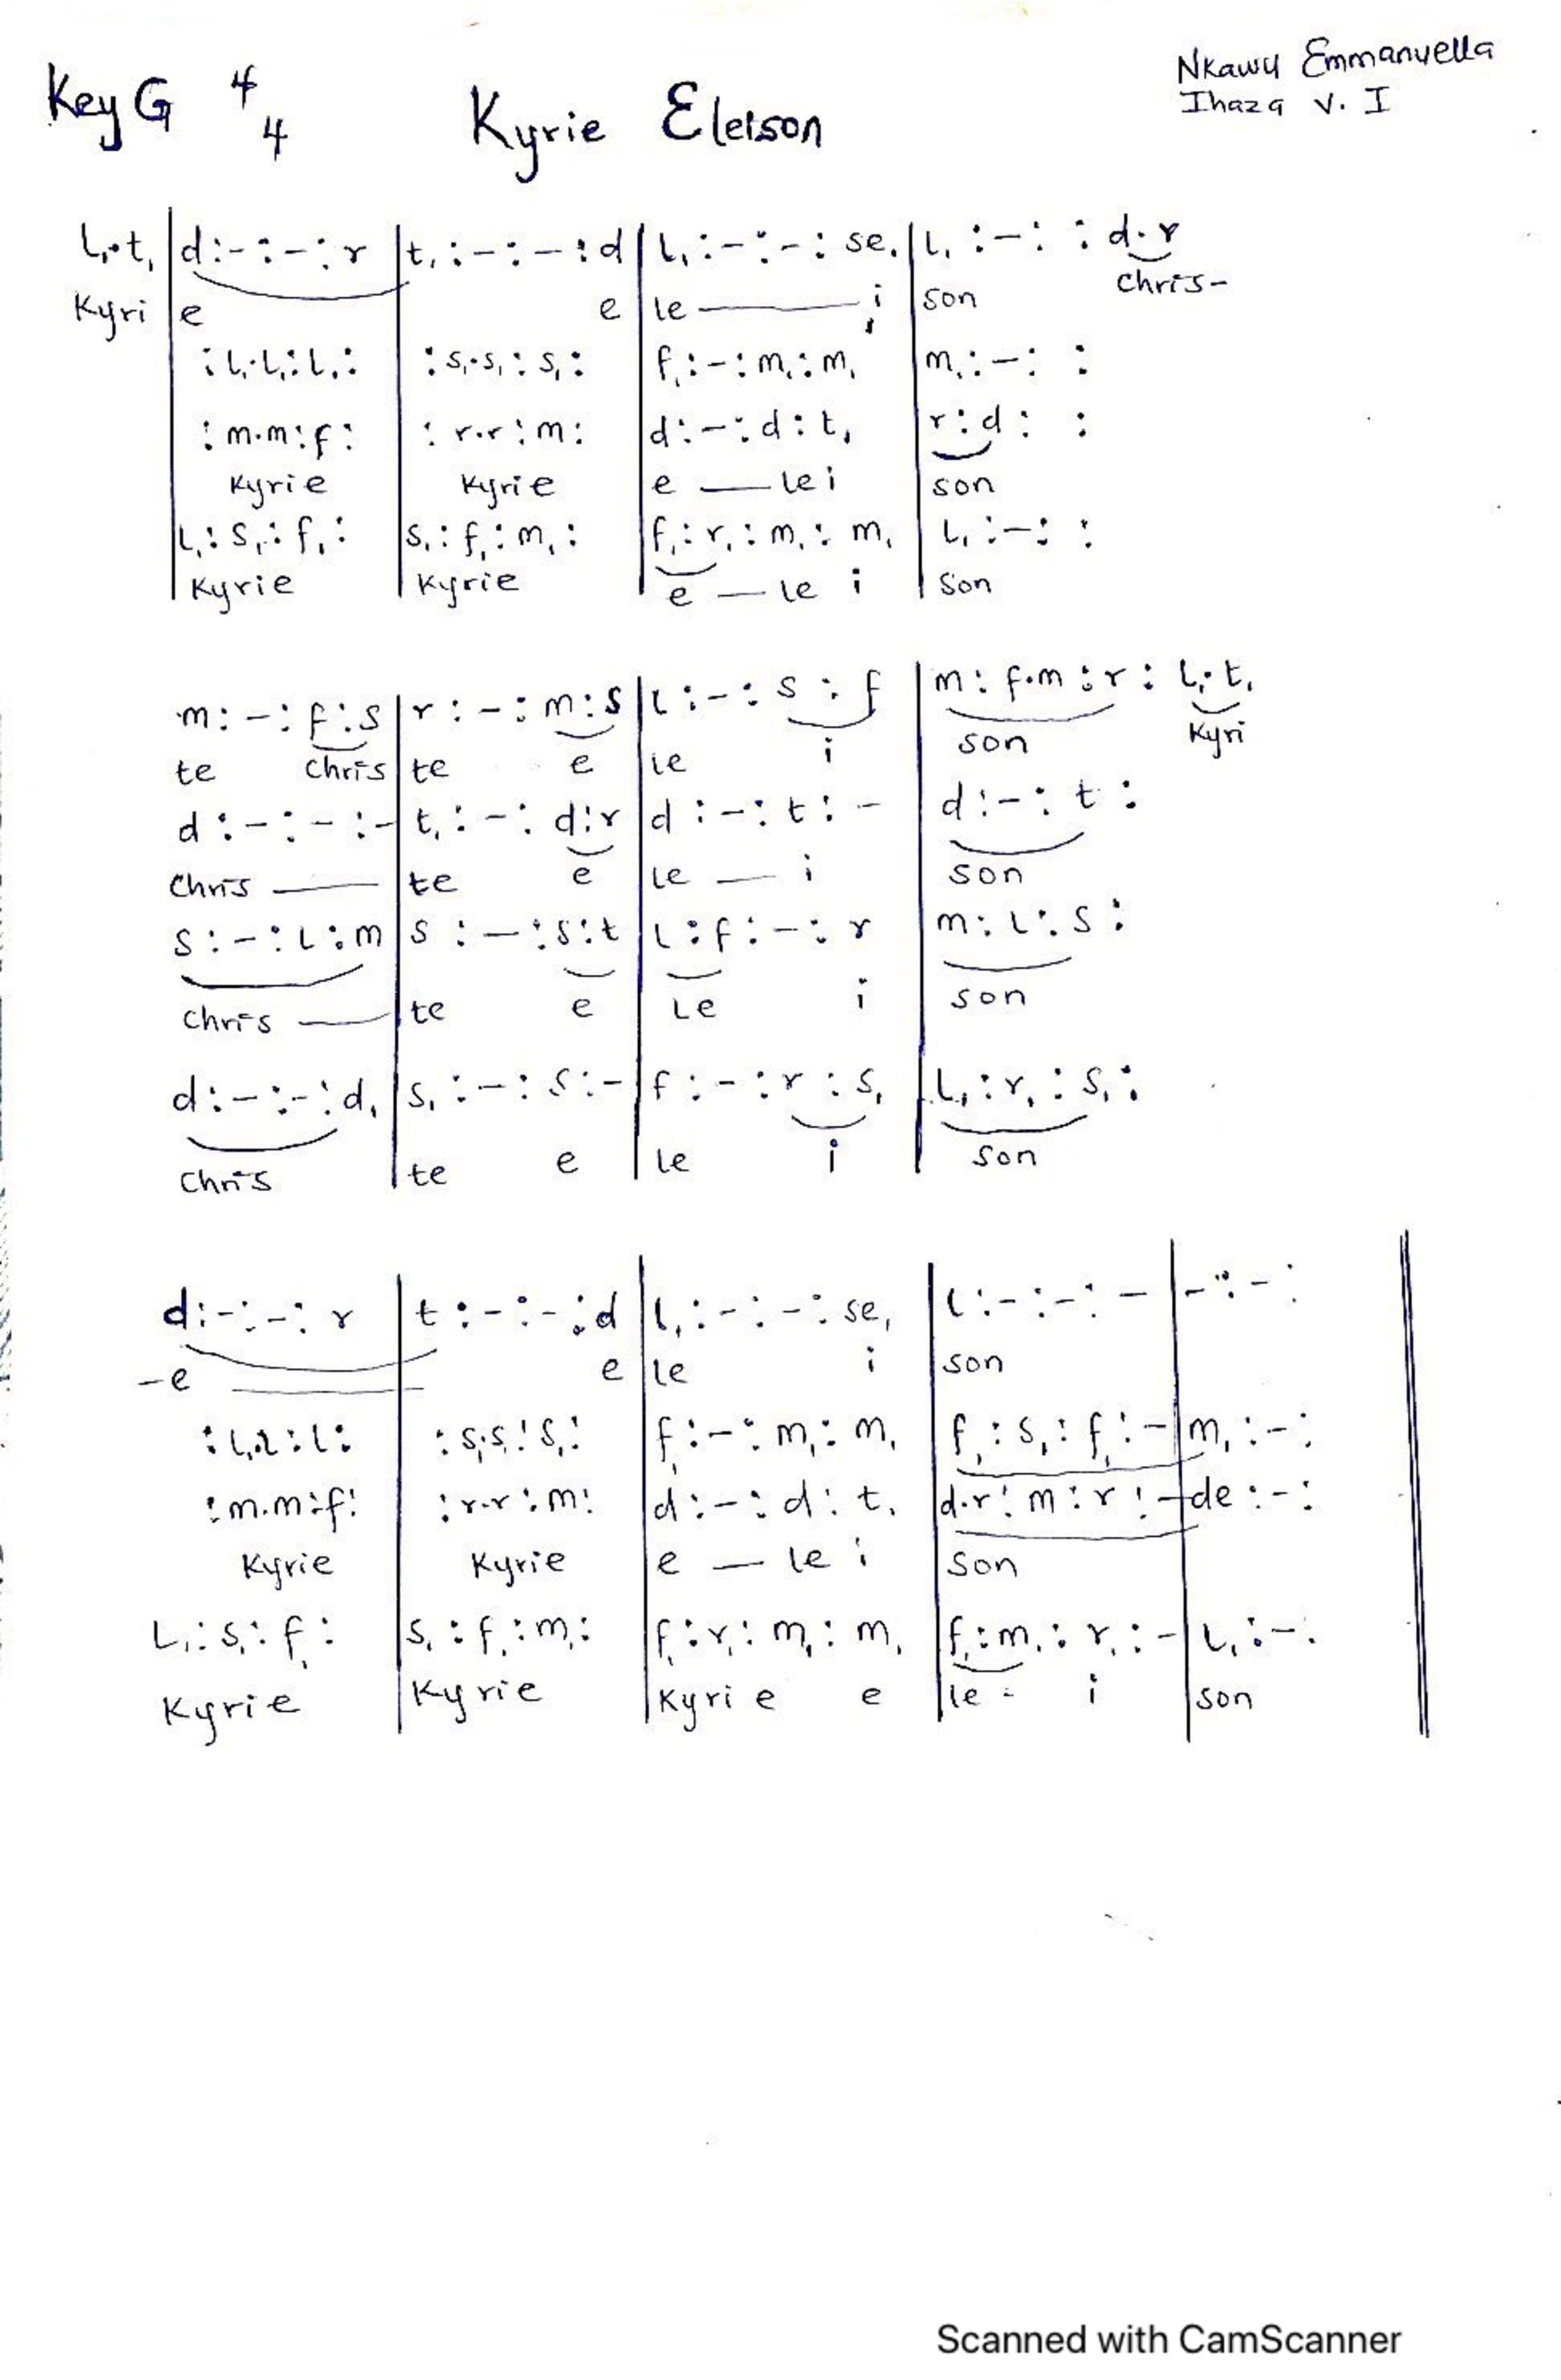 Key G 4/4 Kyrie Eleison
Nkawu Emmanuella
Ihaza V. I
l,.t, | d:-:-:r | t,:-:-:d | l,:-:-:se, | l,:-: :d.r
Chris-
Kyri | e e | le——— i | son
:l,.l,:l,: | :s,.s,:s,: | f,:-:m,:m, | m,:-: :
:m.m:f: | :r.r:m: | d:-:d:t, | r:d: :
Kyrie Kyrie e — lei son
l,:s,:f,: | s,:f,:m,: | f,:r,:m,:m, | l,:-: :
Kyrie | Kyrie | e — le i | son
m:-:f:s | r:-:m:s | l:-:s:f | m:f.m:r:l,.t,
te Chris | te e | le i | son Kyri
d:-:-:- | t,:-:d:r | d:-:t:- | d:-:t:
Chris —— | te e | le — i | son
s:-:l:m | s:-:s:t | l:f:-:r | m:l:s:
Chris —— | te e | Le i | son
d:-:-:d, | s,:-:s:- | f:-:r:s, | l,:r,:s,:
Chris | te e | le i | son
d:-:-:r | t:-:-:d | l,:-:-:se, | l:-:-:- | -:-:
-e —— e | le i | son
:l,.l:l: | :s,.s,:s,: | f,:-:m,:m, | f,:s,:f,:- | m,:-:
:m.m:f: | :r.r:m: | d:-:d:t, | d.r:m:r:- | de:-:
Kyrie | Kyrie | e — le i | son
L,:s,:f,: | s,:f,:m,: | f,:r,:m,:m, | f,:m,:r,:- | l,:-:
Kyrie | Kyrie | Kyri e e | le - i | son
Scanned with CamScanner